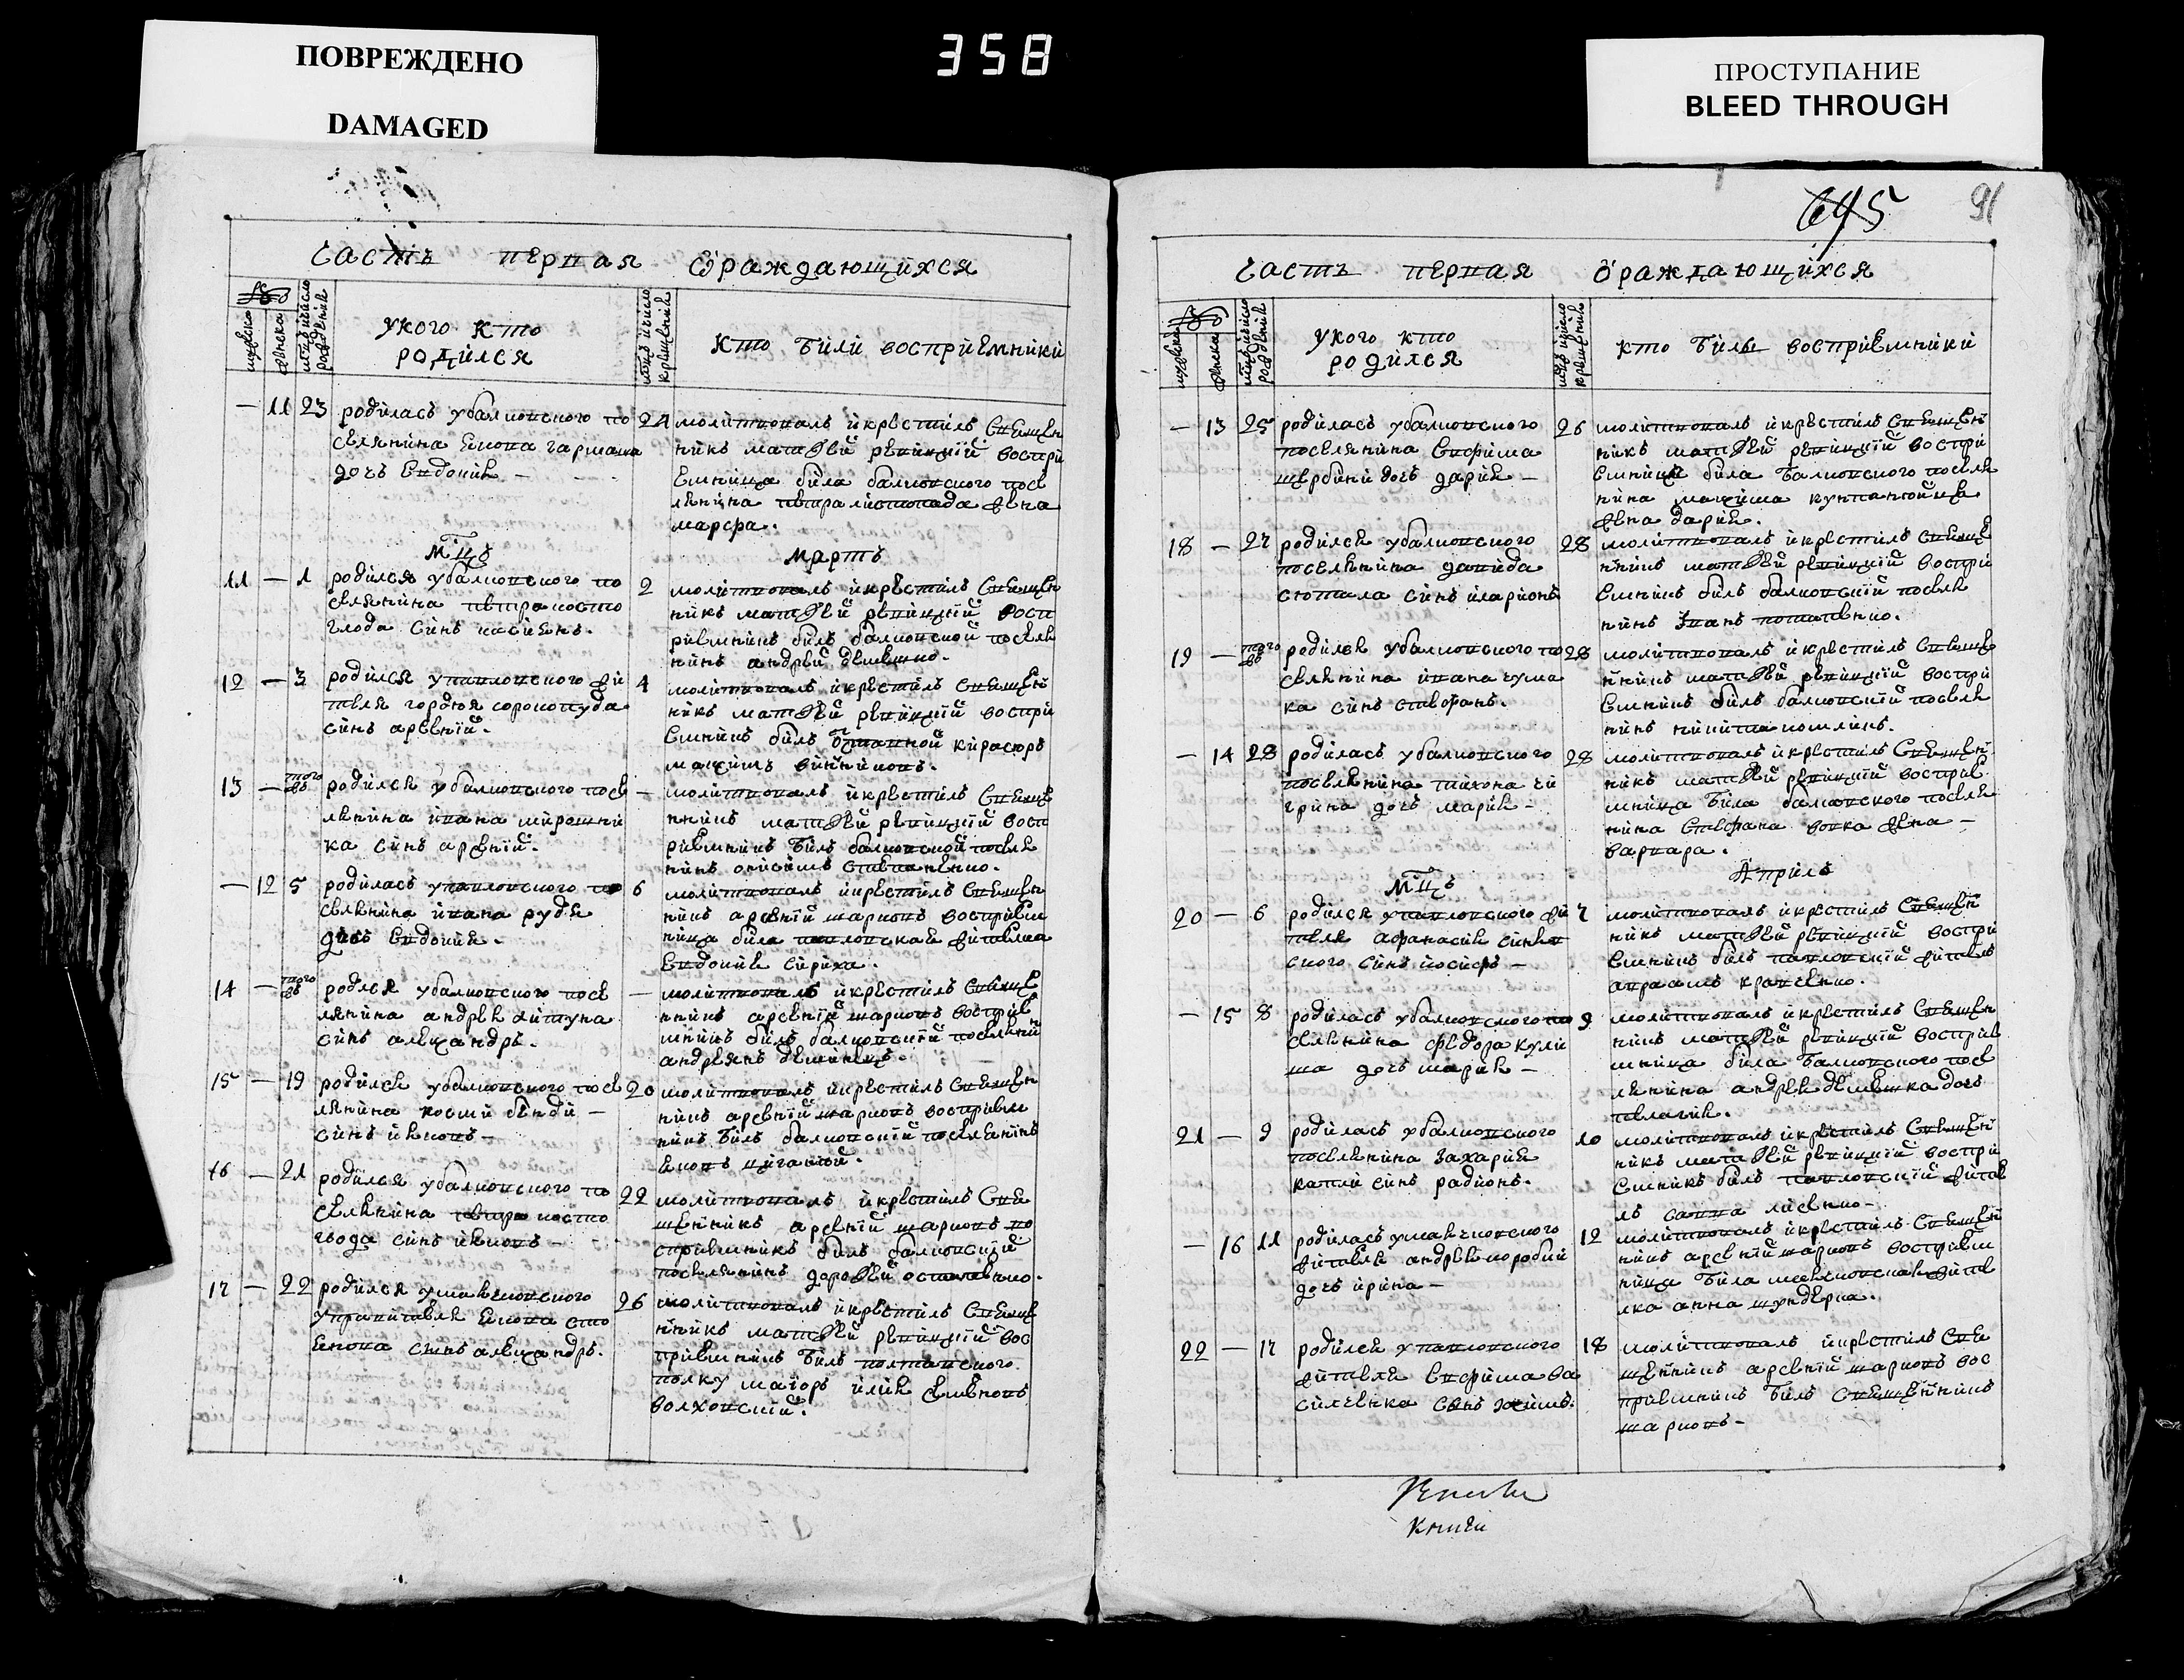 ПОВРЕЖДЕНО
DAMAGED
358
ПРОСТУПАНИЕ
BLEED THROUGH
645
91
Часть первая О раждающихся
мужеска
женска
укого кто
родился
кто били восприемники
— 11 23 родилась убалковского по
селянина
дочь Евдокия —
24 молитвовалъ и крестилъ Священ
никъ матвей ревицкий воспри
емница била балковского посе
лянина петра листопада жена
марфа.
Мцъ мартъ
11 — 1 родился убалковского по
селянина петра косто
глода синъ касиянъ.
2 молитвовалъ и крестилъ Священ
никъ матвей ревицкий восп
риемникъ билъ балковской поселя
нинъ андрей
12 — 3 родился упавловского жи
теля гордея сорокопуда
синъ арсений.
4 молитвовалъ и крестилъ Священ
никъ матвей ревицкий воспри
емникъ билъ киръ
максимъ
13 — того же родился убалковского посе
лянина ивана мирошни
ка синъ арсений.
— молитвовалъ и крестилъ Свяще
нникъ матвей ревицкий восп
риемникъ билъ балковской поселя
нинъ онисимъ степаненко.
— 12 5 родилась упавловского по
селянина ивана рудя
дочь Евдокия.
6 молитвовалъ и крестилъ Священ
никъ арсений марковъ восприем
ница била павловская жителка
Евдокия сириха.
14 — того же родился убалковского посе
лянина андрея
синъ александръ.
— молитвовалъ и крестилъ Свяще
нникъ арсений марковъ восприе
мникъ билъ балковский поселянин
15 — 19 родился убалковского посе
лянина косми бенди —
синъ иаковъ —
20 молитвовалъ и крестилъ Священ
никъ арсений марковъ восприем
никъ билъ балковский поселянинъ
яковъ
16 — 21 родился убалковского по
селянина петра косто
глода синъ иаковъ —
22 молитвовалъ и крестилъ Свя
щенникъ арсений марковъ во
сприемникъ билъ балковский
поселянинъ дорофей остапенко.
17 — 22 родился умаячковского
управителя Якова сто
янова синъ александръ.
26 молитвовалъ и крестилъ Свяще
нникъ матвей ревицкий вос
приемникъ билъ полтавского
полку маюръ илия
волховский.
Часть первая О раждающихся
мужеска
женска
укого кто
родился
кто били восприемники
— 13 25 родилась убалковского
поселянина Евфима
щербини дочь дария —
26 молитвовалъ и крестилъ Священ
никъ матвей ревицкий воспри
емница била балковского поселя
нина максима
жена дария.
18 — 27 родился убалковского
поселянина давида
синъ иларионъ
28 молитвовалъ и крестилъ Свяще
нникъ матвей ревицкий воспри
емникъ билъ балковский поселя
нинъ Иванъ потапенко.
19 — того же родился убалковского по
селянина ивана чума
ка синъ стефанъ.
28 молитвовалъ и крестилъ Свяще
нникъ матвей ревицкий воспри
емникъ билъ балковский поселя
нинъ никита
— 14 28 родилась убалковского
поселянина тихона чи
грина дочь мария —
28 молитвовалъ и крестилъ Священ
никъ матвей ревицкий восприе
мница била балковского поселя
нина Стефана вовка жена —
варвара.
Мцъ Априлъ
20 — 6 родился упавловского жи
теля афанасия синков
ского синъ иосифъ —
7 молитвовалъ и крестилъ Священ
никъ матвей ревицкий воспри
емникъ билъ павловский житель
авраамъ кравченко.
— 15 8 родилась убалковского по
селянина федора кули
ша дочь мария —
9 молитвовалъ и крестилъ Священ
никъ матвей ревицкий восприе
мница била балковского посе
лянина андрея дочь
пелагия.
21 — 9 родилась убалковского
поселянина Захария
капли синъ радионъ.
10 молитвовалъ и крестилъ Священ
никъ матвей ревицкий воспри
емникъ билъ павловский жите
ль савва лисенко —
— 16 11 родилась умаячковского
жителя андрея коробки
дочь ирина —
12 молитвовалъ и крестилъ Священ
никъ арсений марковъ восприем
ница била маячковская жите
лка анна
22 — 17 родился упавловского
жителя Евфима ва
силенка синъ
18 молитвовалъ и крестилъ Свя
щенникъ арсений марковъ вос
приемникъ билъ Священникъ
марковъ —
книги